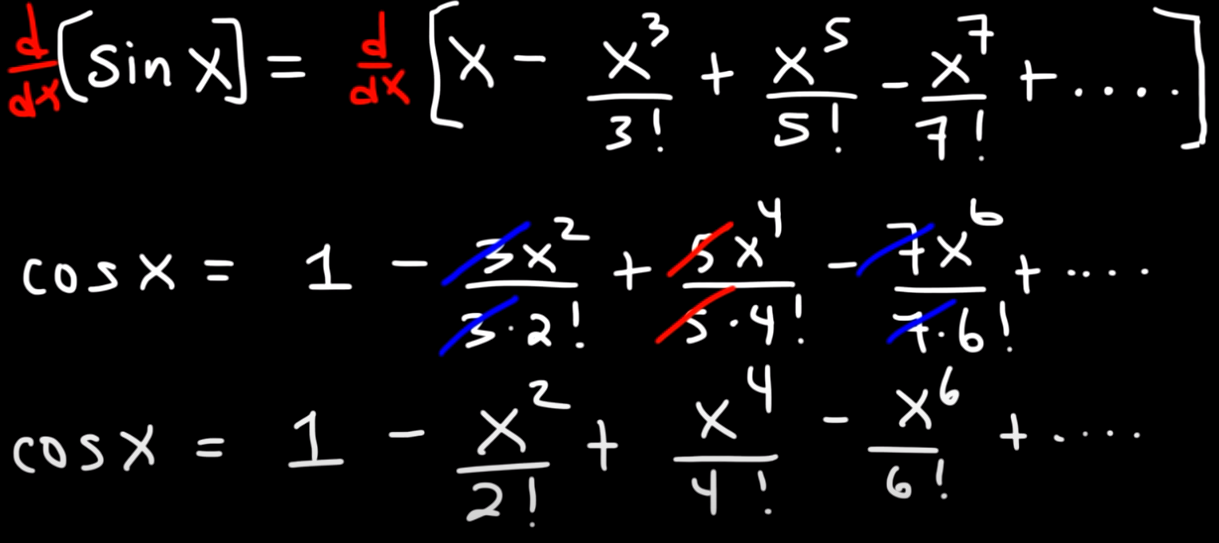 d/dx [sin x] = d/dx [x - x³/3! + x⁵/5! - x⁷/7! + ....]
cos x = 1 - 3x²/3·2! + 5x⁴/5·4! - 7x⁶/7·6! + ....
cos x = 1 - x²/2! + x⁴/4! - x⁶/6! + ....